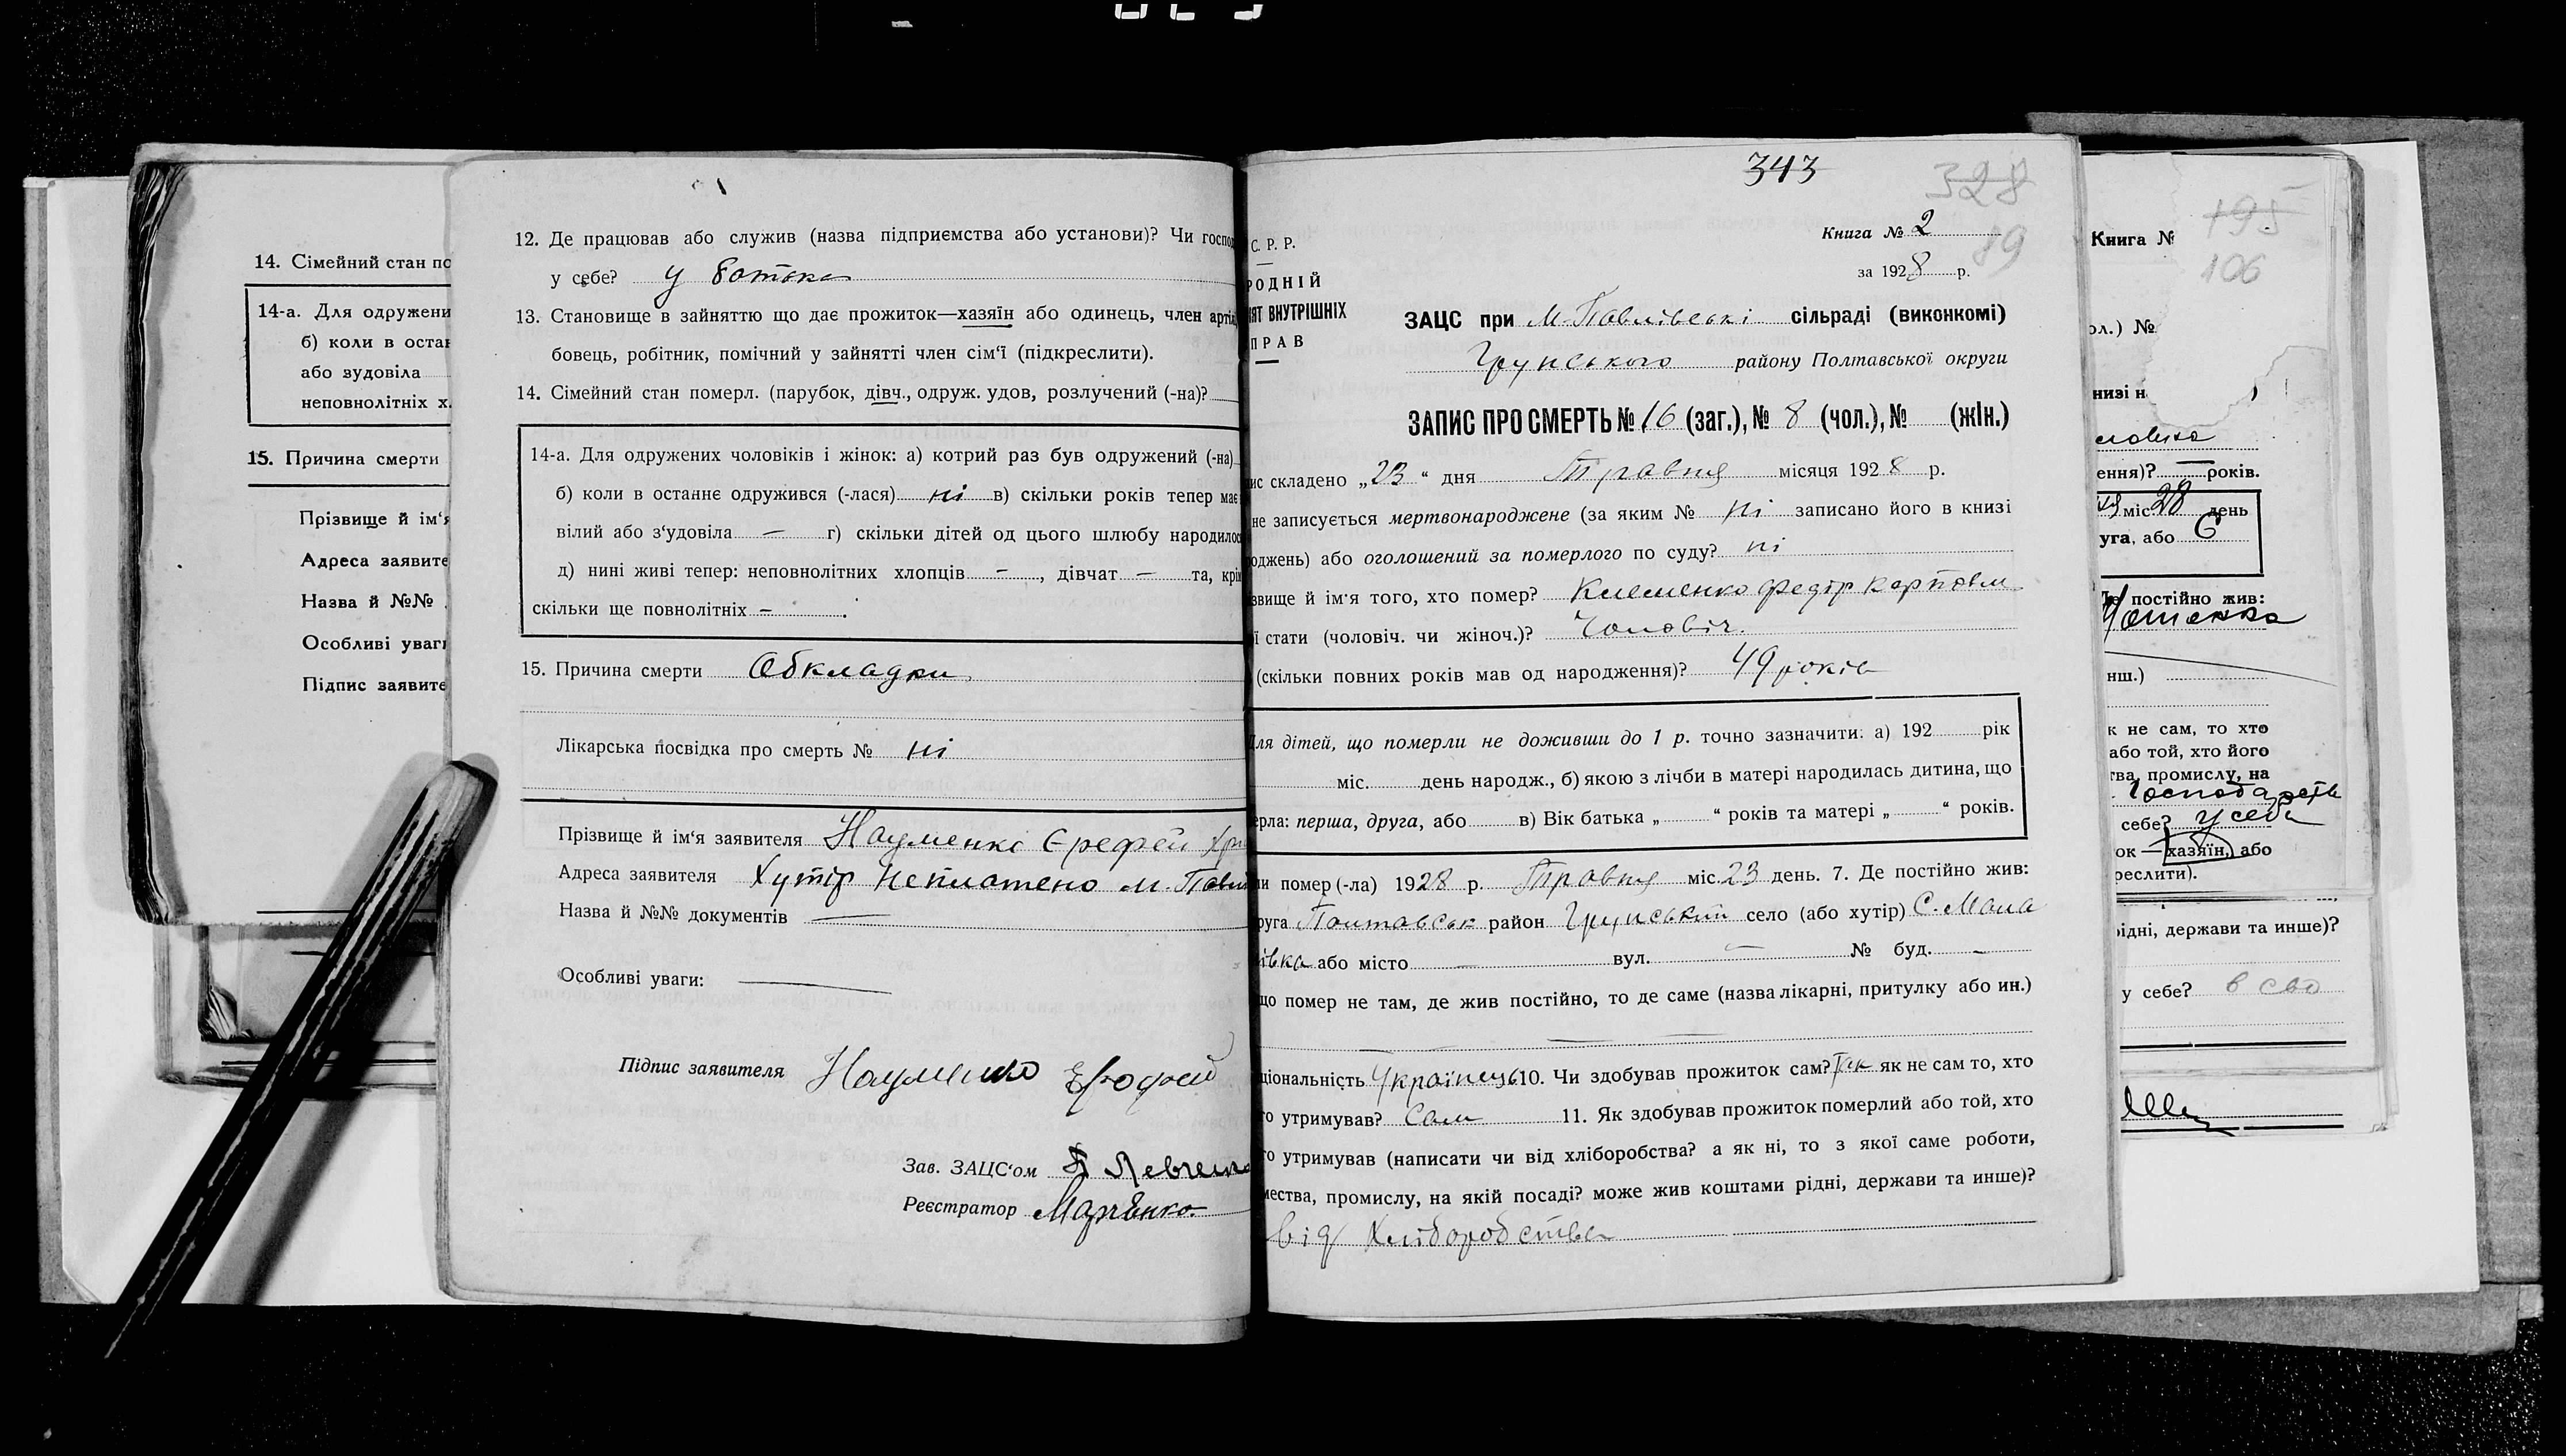 14. Сімейний стан по
14-а. Для одружени
б) коли в остан
або зудовіла
неповнолітніх х.
15. Причина смерти
Прізвище й ім'я
Адреса заявите
Назва й №№
Особливі уваги
Підпис заявите
12. Де працював або служив (назва підприємства або установи)? Чи господ
у себе? у батька
13. Становище в зайняттю що дає прожиток—хазяїн або одинець, член артіл
бовець, робітник, помічний у зайнятті член сім'ї (підкреслити).
14. Сімейний стан померл. (парубок, дівч., одруж. удов, розлучений (-на)?
14-а. Для одружених чоловіків і жінок: а) котрий раз був одружений (-на)
б) коли в останнє одружився (-лася) ні в) скільки років тепер має
вілий або з'удовіла — г) скільки дітей од цього шлюбу народилос
д) нині живі тепер: неповнолітних хлопців —, дівчат — та, крім
скільки ще повнолітніх —.
15. Причина смерти Обкладки
Лікарська посвідка про смерть № ні
Прізвище й ім'я заявителя Науменко Єрефей
Адреса заявителя Хутір Неплатено М. Павл
Назва й №№ документів —
Особливі уваги: —
Підпис заявителя Науменко Єрофей
Зав. ЗАЦС'ом Левченко
Реєстратор Марченко
343
328
19
Книга № 2
за 1928 р.
С. Р. Р.
РОДНІЙ
ІЯТ ВНУТРІШНІХ
ПРАВ
ЗАЦС при М-Павлівські сільраді (виконкомі)
Грунського району Полтавської округи
ЗАПИС ПРО СМЕРТЬ № 16 (заг.), № 8 (чол.), № (жін.)
ис складено „23“ дня Травня місяця 1928 р.
не записується мертвонароджене (за яким № ні записано його в книзі
оджень) або оголошений за померлого по суду? ні
звище й ім'я того, хто помер? Клеменко Федір Карпович
ї стати (чоловіч. чи жіноч.)? Чоловіч.
(скільки повних років мав од народження)? 49 років
Для дітей, що померли не доживши до 1 р. точно зазначити: а) 192 рік
міс. день народж., б) якою з лічби в матері народилась дитина, що
ерла: перша, друга, або в) Вік батька „ “ років та матері „ “ років.
ли помер (-ла) 1928 р. Травня міс. 23 день. 7. Де постійно жив:
руга Полтавськ район Грунський село (або хутір) С. Мала
івка або місто — вул. — № буд. —
що помер не там, де жив постійно, то де саме (назва лікарні, притулку або ин.)
ціональність Українець 10. Чи здобував прожиток сам? Так як не сам то, хто
го утримував? Сам 11. Як здобував прожиток померлий або той, хто
го утримував (написати чи від хліборобства? а як ні, то з якої саме роботи,
мества, промислу, на якій посаді? може жив коштами рідні, держави та инше)?
від Хліборобства
195
106
Книга №
ол.) №
низі н
ення)? — років.
міс 28 день
уга, або 6
Де постійно жив:
нш.)
к не сам, то хто
або той, хто його
тва, промислу, на
себе? у себе
ок — хазяїн, або
реслити).
рідні, держави та инше)?
у себе? в сво